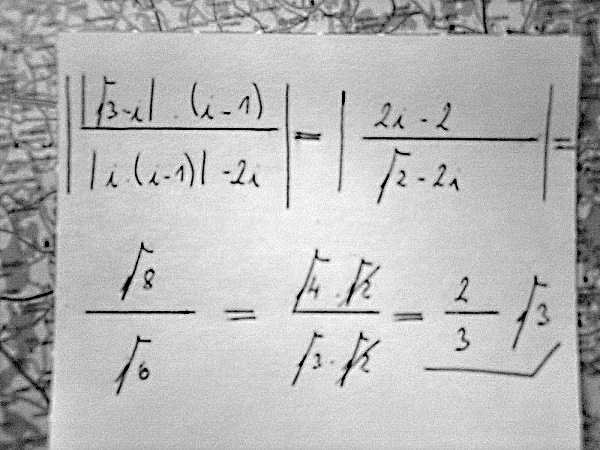 | |√3-i| · (i-1) / |i·(i-1)| -2i | = | 2i-2 / √2-2i | =
√8 / √6 = √4·√2 / √3·√2 = 2/3 √3